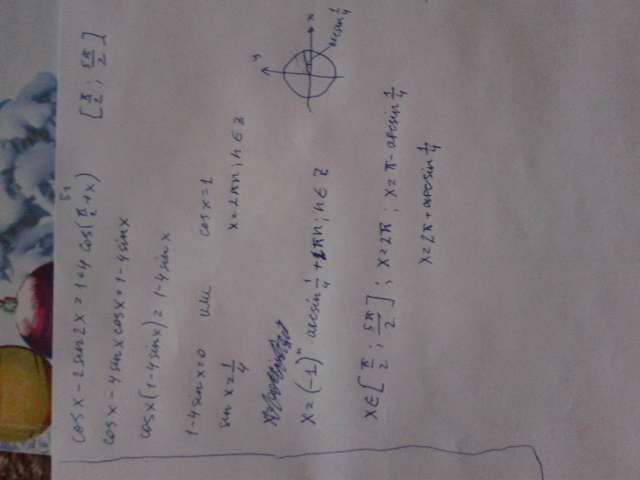 cos x - 2 sin 2x = 1 + 4 cos(π/2 + x) [π/2 ; 5π/2]
cos x - 4 sin x cos x = 1 - 4 sin x
cos x (1 - 4 sin x) = 1 - 4 sin x
1 - 4 sin x = 0 или cos x = 1
sin x = 1/4 x = 2πn ; n ∈ Z
y x arcsin 1/4
x = (-1)ⁿ arcsin 1/4 + πn ; n ∈ Z
x ∈ [π/2 ; 5π/2] ; x = 2π ; x = π - arcsin 1/4
x = 2π + arcsin 1/4